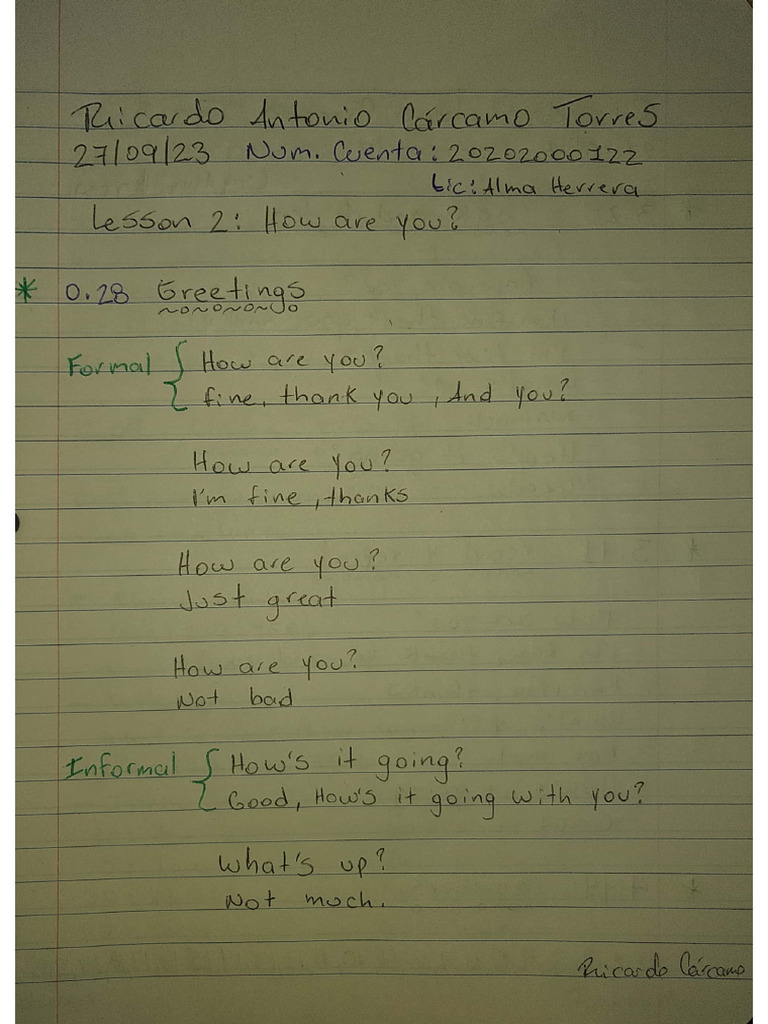 Ricardo Antonio Cárcamo Torres
27/09/23 Num. Cuenta: 20202000122
Lic: Alma Herrera
Lesson 2: How are you?
* 0.28 Greetings
Formal { How are you?
fine, thank you, And you?
How are you?
I'm fine, thanks
How are you?
Just great
How are you?
Not bad
Informal { How's it going?
Good, How's it going with you?
What's up?
Not much.
Ricardo Cárcamo